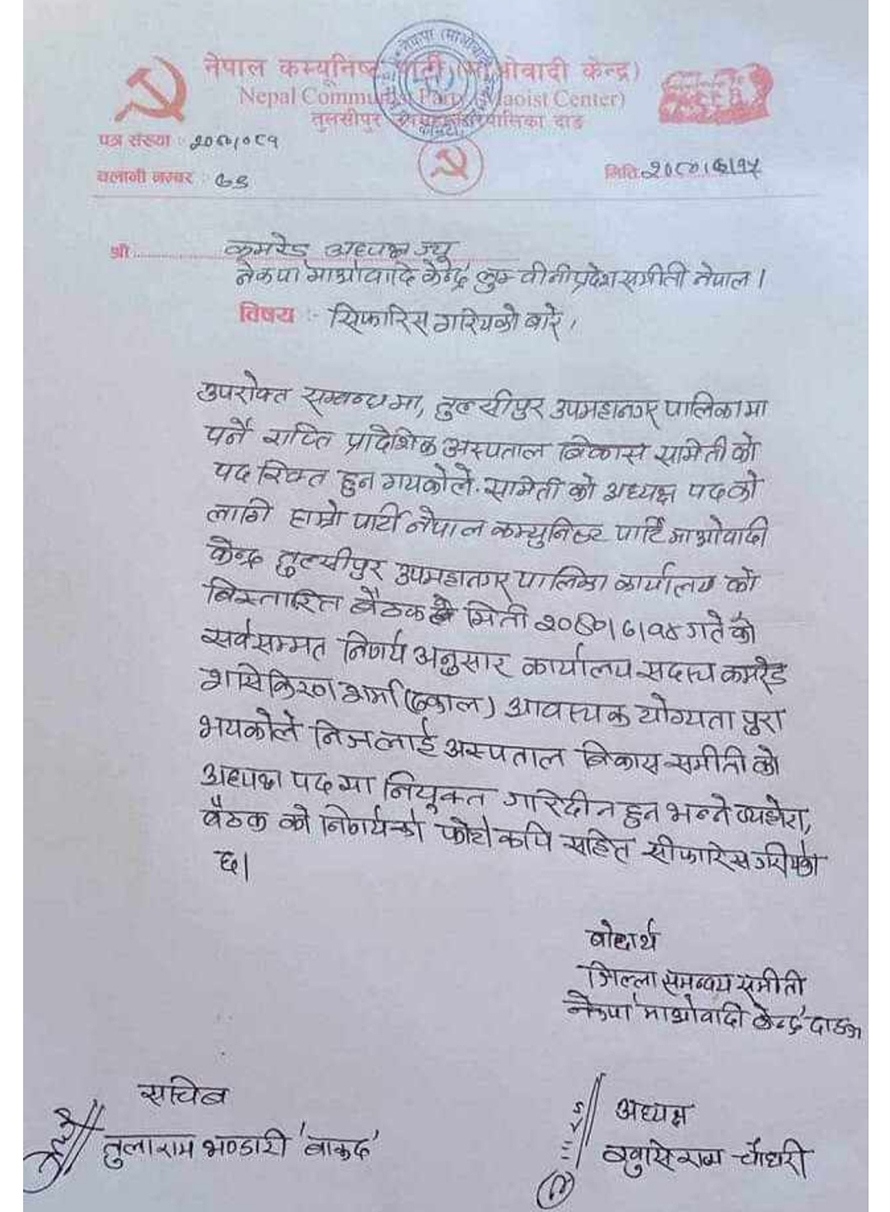 नेपाल कम्यूनिष्ट पार्टी (माओवादी केन्द्र)
Nepal Communist Party (Maoist Center)
तुलसीपुर उपमहानगरपालिका दाङ
पत्र संख्या :
चलानी नम्बर :
मिति:
श्री कमरेड अध्यक्ष ज्यू
नेकपा माओवादि केन्द्र लुम्वीनी प्रदेश समीती नेपाल ।
विषय :- सिफारिस गरियको बारे ,
उपरोक्त सम्बन्धमा, तुल्सीपुर उपमहानगर पालिकामा
पर्ने राप्ति प्रादेशिक अस्पताल बिकास समिती को
पद रिक्त हुन गयकोले. समिती को अध्यक्ष पदको
लागि हाम्रो पार्टी नेपाल कम्युनिष्ट पार्टि माओवादी
केन्द्र तुल्सीपुर उपमहानगर पालिका कार्यालय को
बिस्तारित बैठक मिती गते को
सर्वसम्मत निर्णय अनुसार कार्यालय सदस्य कमरेड
शसिकिरण शर्मा (ढकाल) आवस्यक योग्यता पुरा
भयकोले निजलाई अस्पताल बिकास समीती को
अध्यक्ष पद मा नियुक्त गरिदीन हुन भन्ने व्यहोरा,
बैठक को निर्णयको फोटो कपि सहित सीफारिस गरीयको
छ।
बोधार्थ
जिल्ला समन्वय समीती
नेकपा माओवादी केन्द्र दाङ
सचिब
तुलाराम भण्डारी
अध्यक्ष
खुसिराम चौधरी